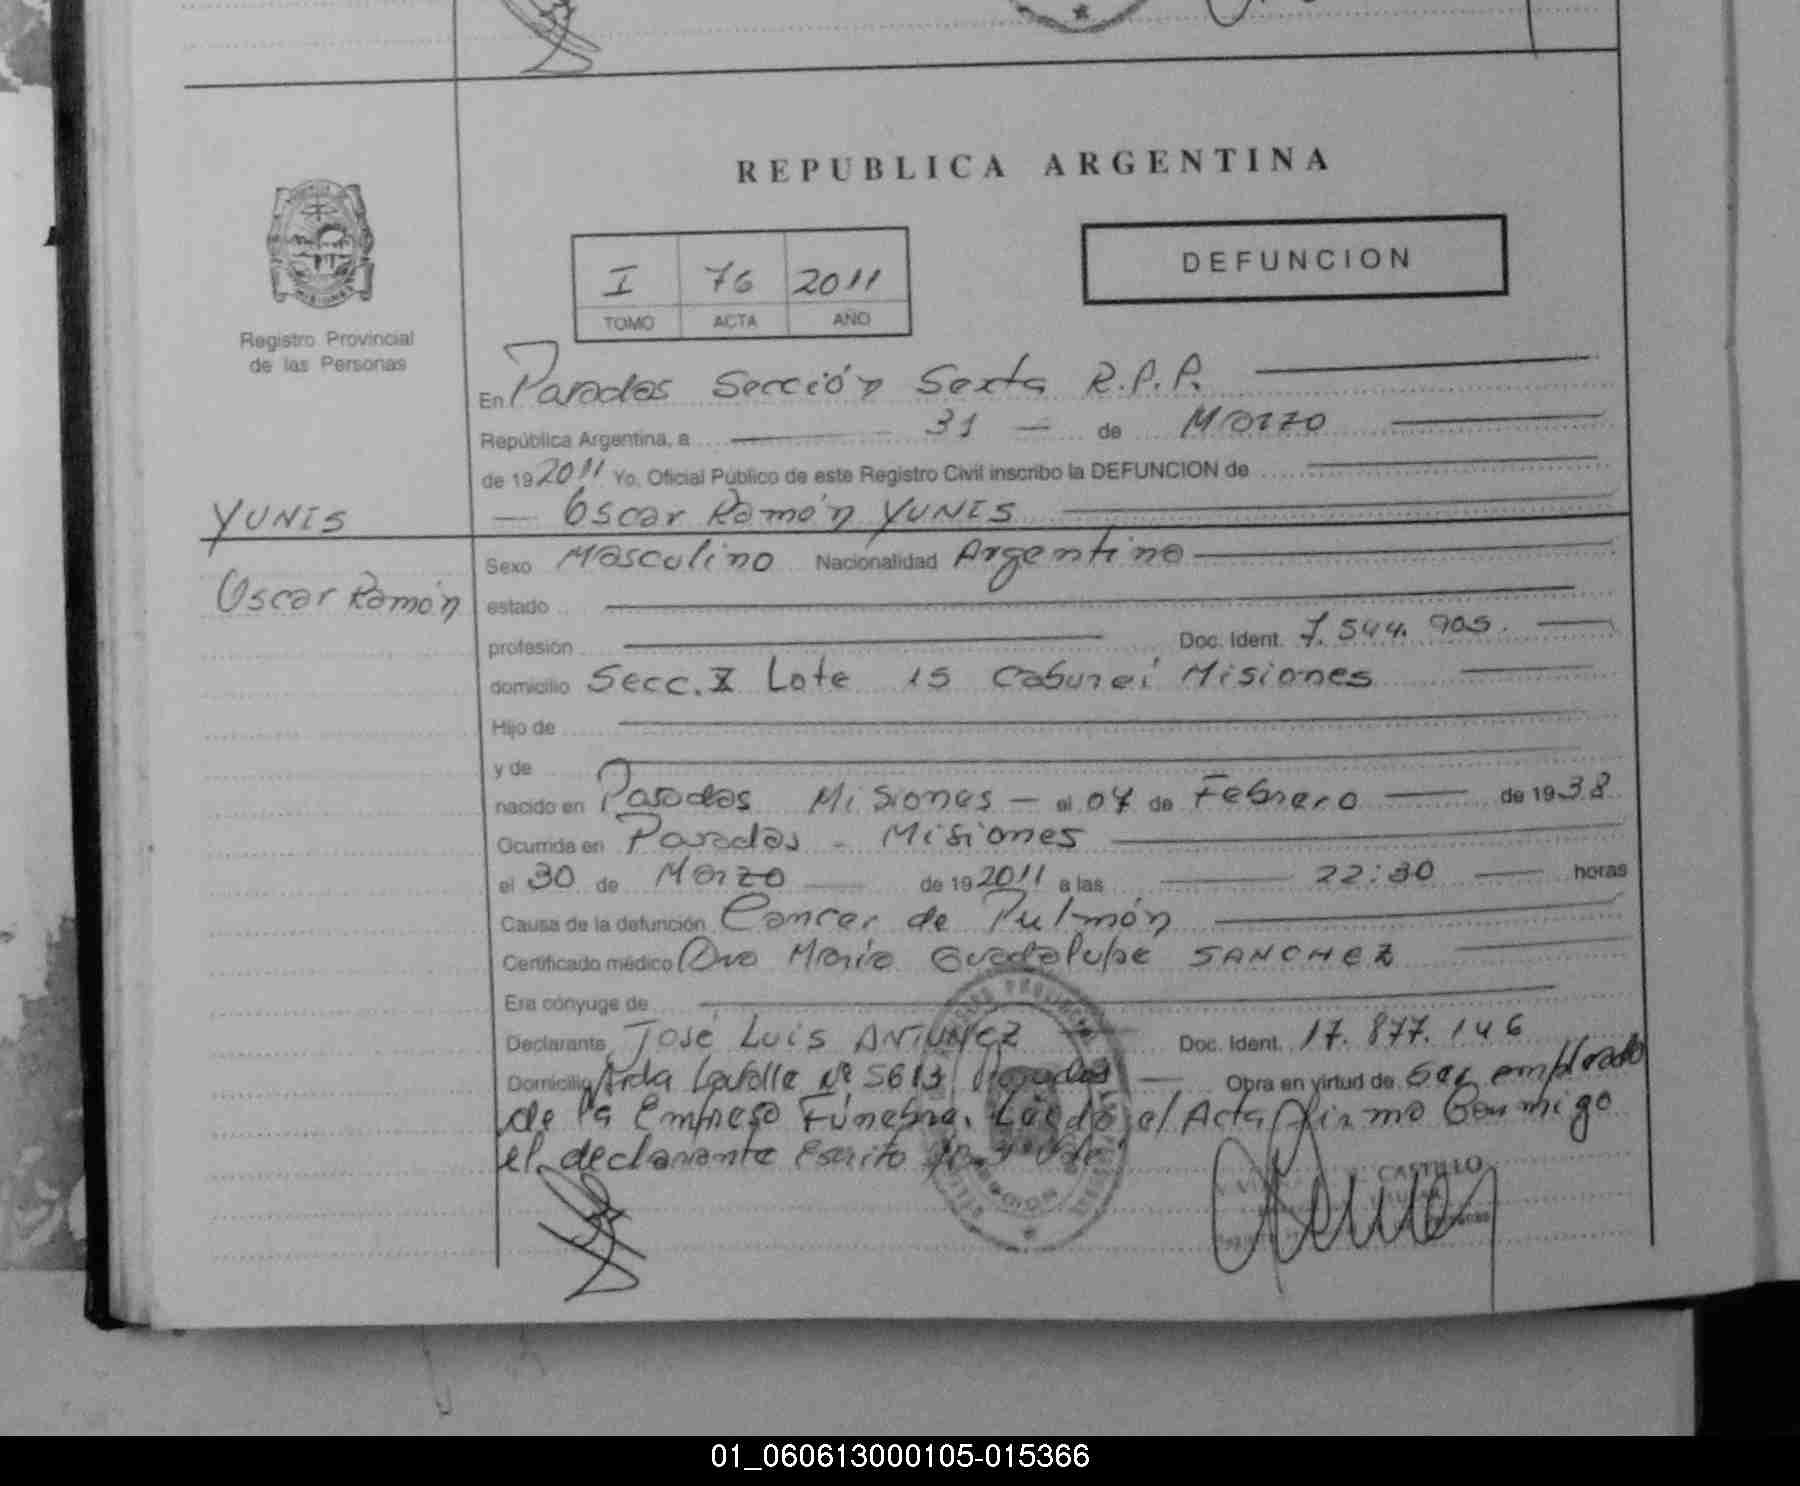 REPUBLICA ARGENTINA
DEFUNCION
I 76 2011
TOMO ACTA AÑO
Registro Provincial
de las Personas
En Posadas Sección Sexta R.P.P.
República Argentina, a 31 de Marzo
de 19 2011 Yo, Oficial Público de este Registro Civil inscribo la DEFUNCION de
YUNIS
Oscar Ramón YUNIS
Sexo Masculino Nacionalidad Argentino
Oscar Ramón
estado
profesión Doc. Ident. 7.544.905.
domicilio Secc. X Lote 15 Caburei Misiones
Hijo de
y de
nacido en Posadas Misiones el 07 de Febrero de 1938
Ocurrida en Posadas - Misiones
el 30 de Marzo de 19 2011 a las 22:30 horas
Causa de la defunción Cancer de Pulmón
Certificado médico Dra María Guadalupe SANCHEZ
Era cónyuge de
Declarante José Luis ANTUNEZ Doc. Ident. 17.877.146
Domicilio Avda Lavalle Nº 5613 Posadas Obra en virtud de ser empleado
de la Empresa Fúnebre. Leída el Acta firma Conmigo
el declarante Escrito
CASTILLO
01_060613000105-015366